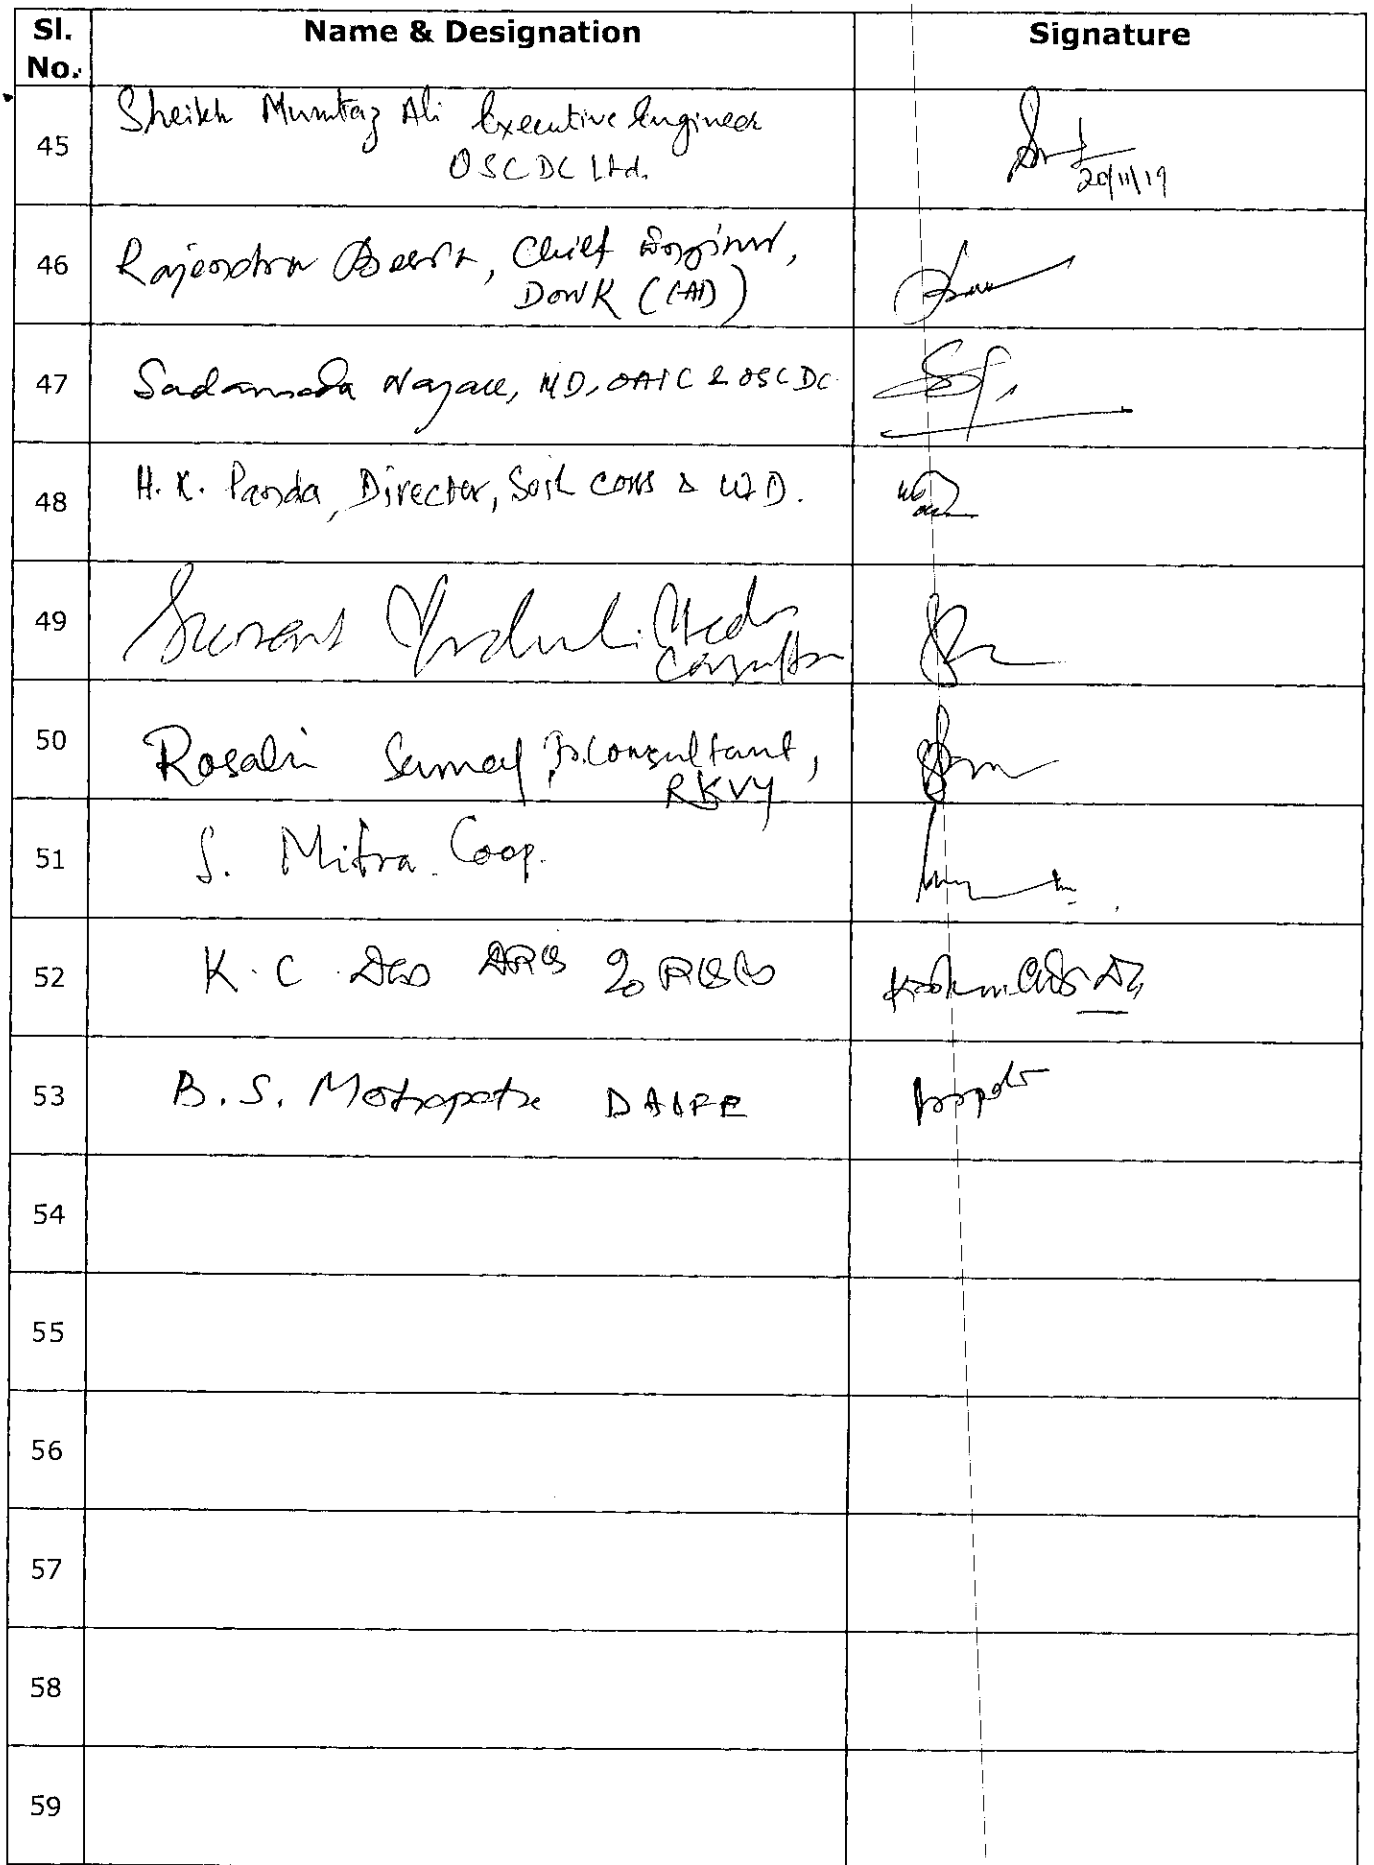 Sl. No. Name & Designation Signature
45 Sheikh Mumtaz Ali Executive Engineer
OSCDC Ltd.
20/11/19
46 Rajendra Chief Engineer,
DoWR (CAD)
47 Sadananda Nayak, MD, OAIC & OSCDC
48 H. K. Panda, Director, Soil Cons & WD.
49 Media
Consultan
50 Rosalin Consultant,
RKVY
51 S. Mitra Coop.
52 K. C. Das ARCS
53 B. S. Mohapatra DA&FE
54
55
56
57
58
59